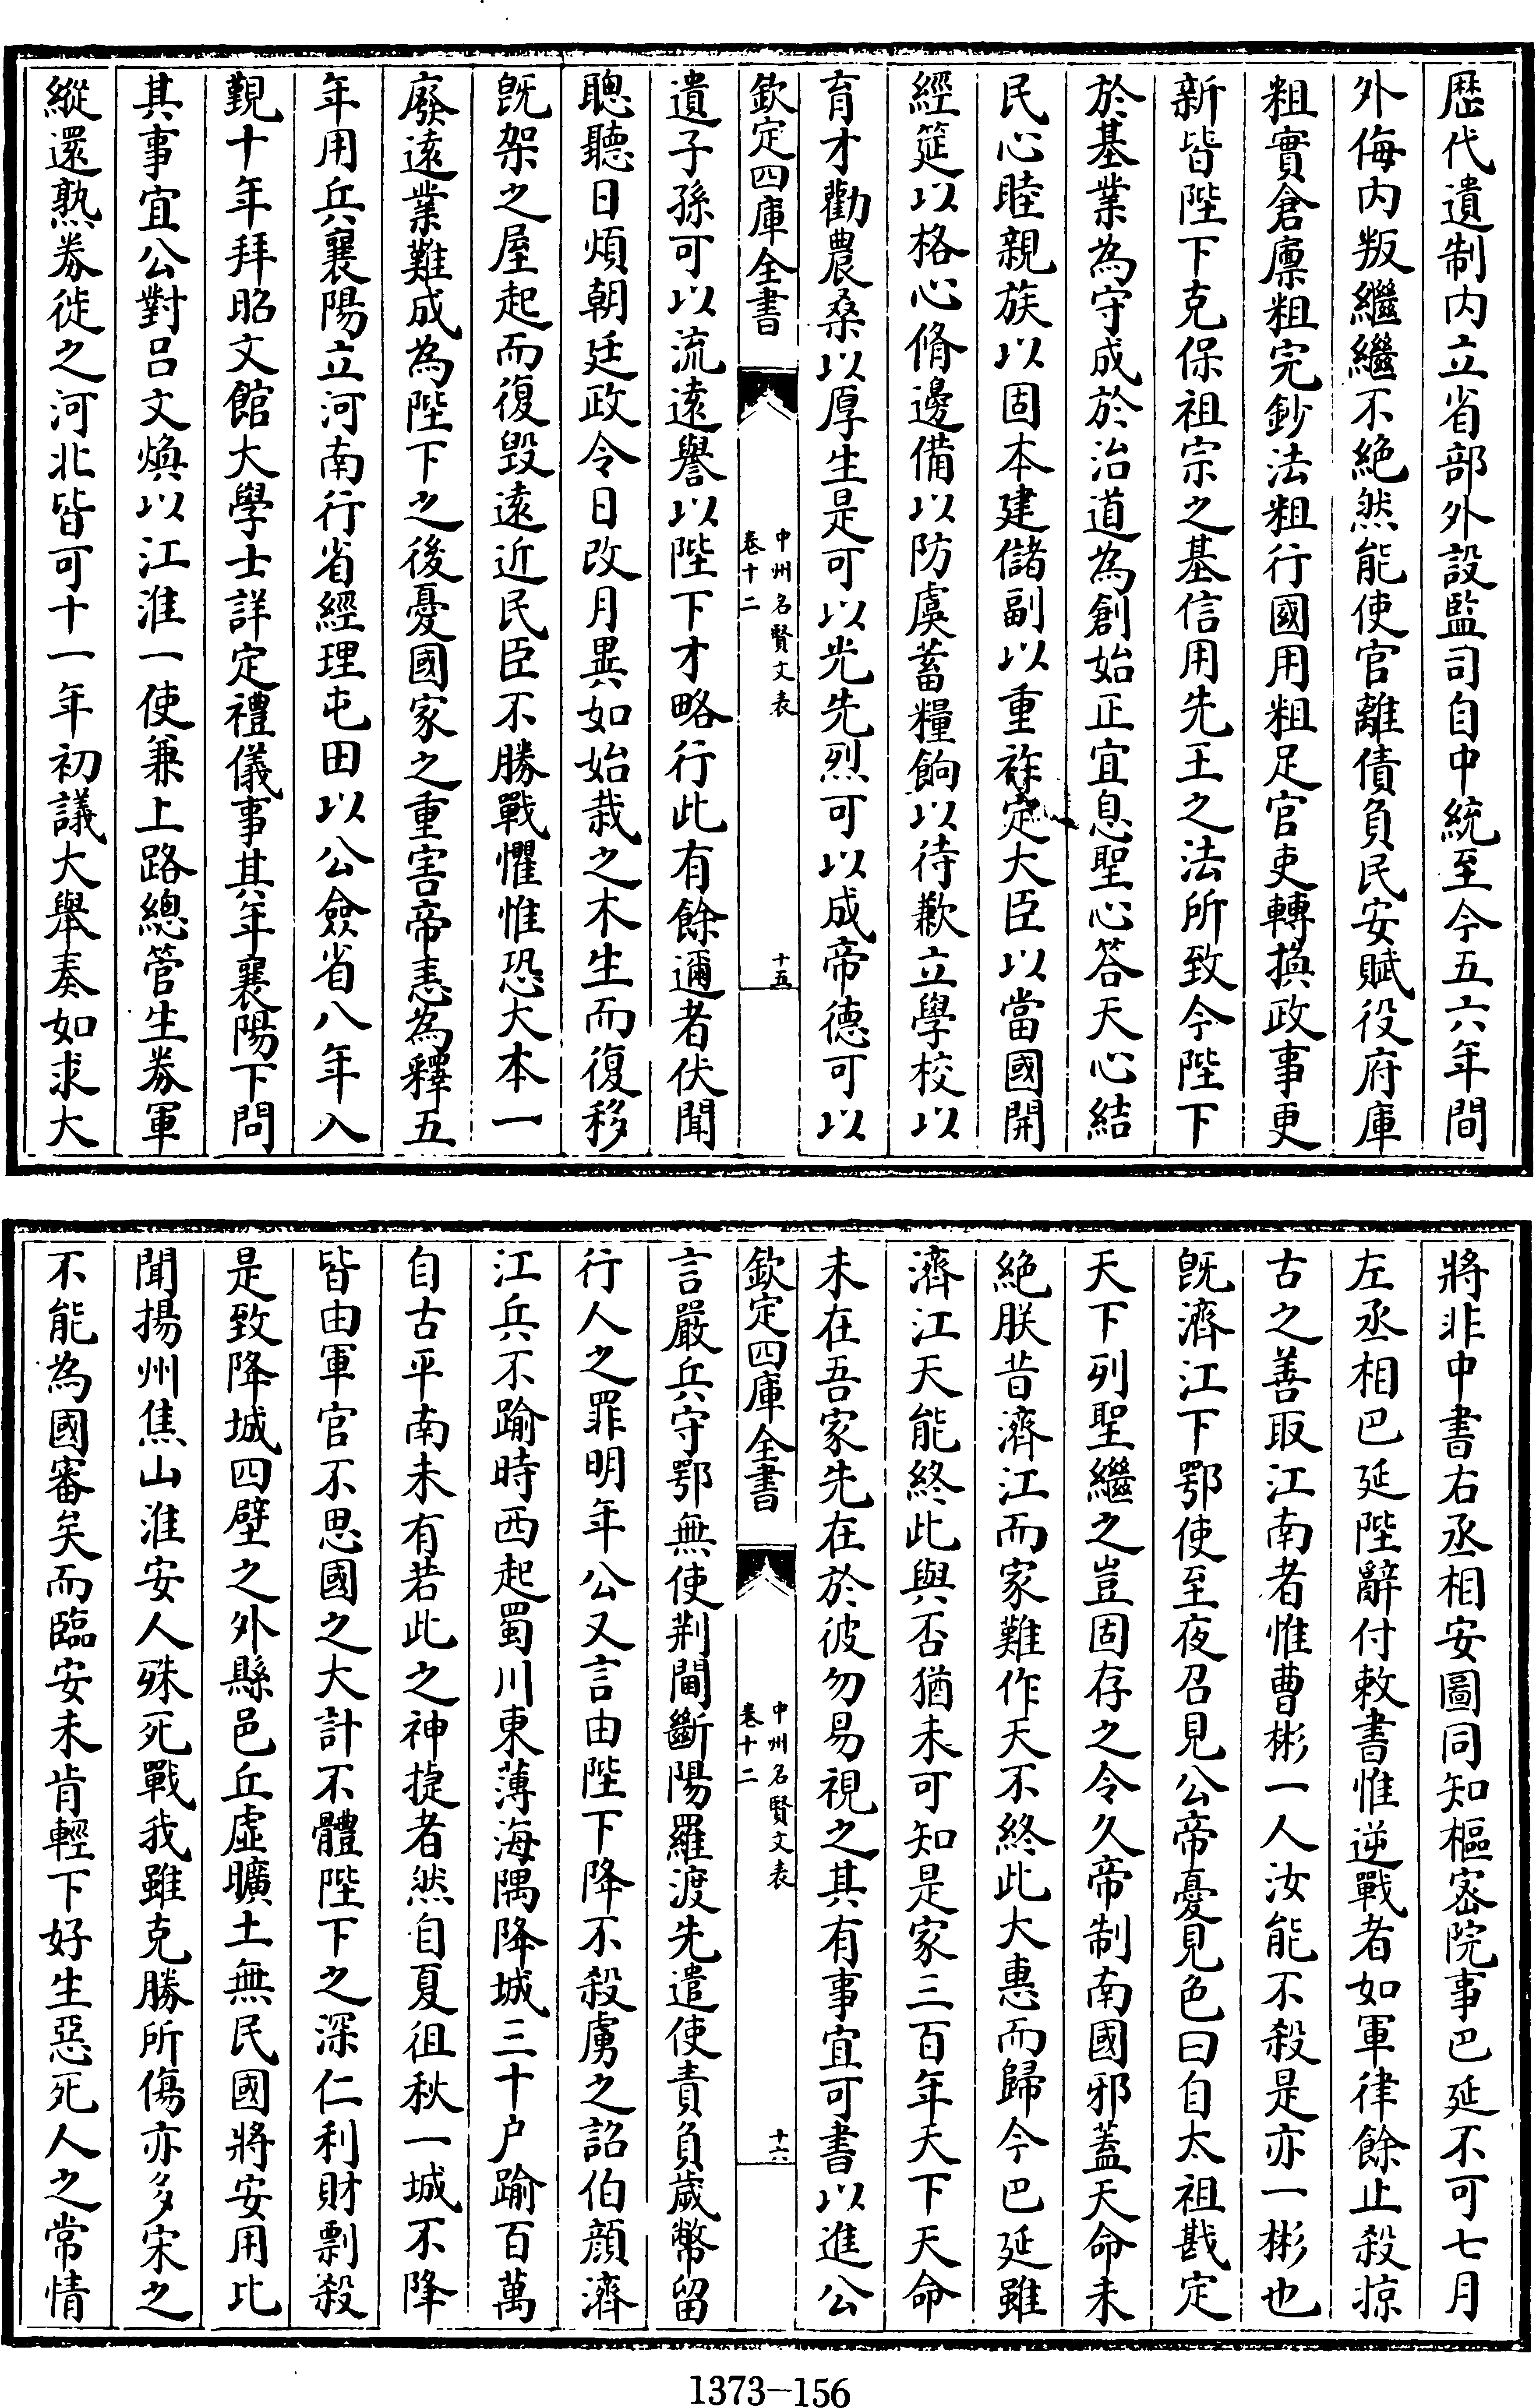 歴代遺制内立省部外設監司自中統至今五六年間
外侮内叛繼繼不絶然能使官離債負民安賦役府庫
粗實倉廩粗完鈔法粗行國用粗足官吏轉換政事更
新皆陛下克保祖宗之基信用先王之法所致今陛下
於基業為守成於治道為創始正宜息聖心答天心結
民心睦親族以固本建儲副以重祚定大臣以當國開
經筵以格心脩邊備以防虞蓄糧餉以待歉立學校以
育才勸農桑以厚生是可以光先烈可以成帝德可以
欽定四庫全書
中州名賢文表
卷十二
十五
遺子孫可以流遠譽以陛下才略行此有餘邇者伏聞
聰聽日煩朝廷政令日改月異如始栽之木生而復移
既架之屋起而復毁遠近民臣不勝戰懼惟恐大本一
廢遠業難成為陛下之後憂國家之重害帝恚為釋五
年用兵襄陽立河南行省經理屯田以公僉省八年入
觀十年拜昭文館大學士詳定禮儀事其年襄陽下問
其事宜公對吕文焕以江淮一使兼上路總管生券軍
縱還熟券徙之河北皆可十一年初議大舉奏如求大
將非中書右丞相安圖同知樞宻院事巴延不可七月
左丞相巴延陛辭付敕書惟逆戰者如軍律餘止殺掠
古之善取江南者惟曹彬一人汝能不殺是亦一彬也
既濟江下鄂使至夜召見公帝憂見色曰自太祖戡定
天下列聖繼之豈固存之令久帝制南國邪蓋天命未
絶朕昔濟江而家難作天不終此大惠而歸今巴延雖
濟江天能終此與否猶未可知是家三百年天下天命
未在吾家先在於彼勿易視之其有事宜可書以進公
欽定四庫全書
中州名賢文表
卷十二
十六
言嚴兵守鄂無使荆閫斷陽羅渡先遣使責負歲幣留
行人之罪明年公又言由陛下降不殺虜之詔伯顔濟
江兵不踰時西起蜀川東薄海隅降城三十户踰百萬
自古平南未有若此之神捷者然自夏徂秋一城不降
皆由軍官不思國之大計不體陛下之深仁利財剽殺
是致降城四壁之外縣邑丘虚曠土無民國將安用比
聞揚州焦山淮安人殊死戰我雖克勝所傷亦多宋之
不能為國審矣而臨安未肯輕下好生惡死人之常情
1373—156